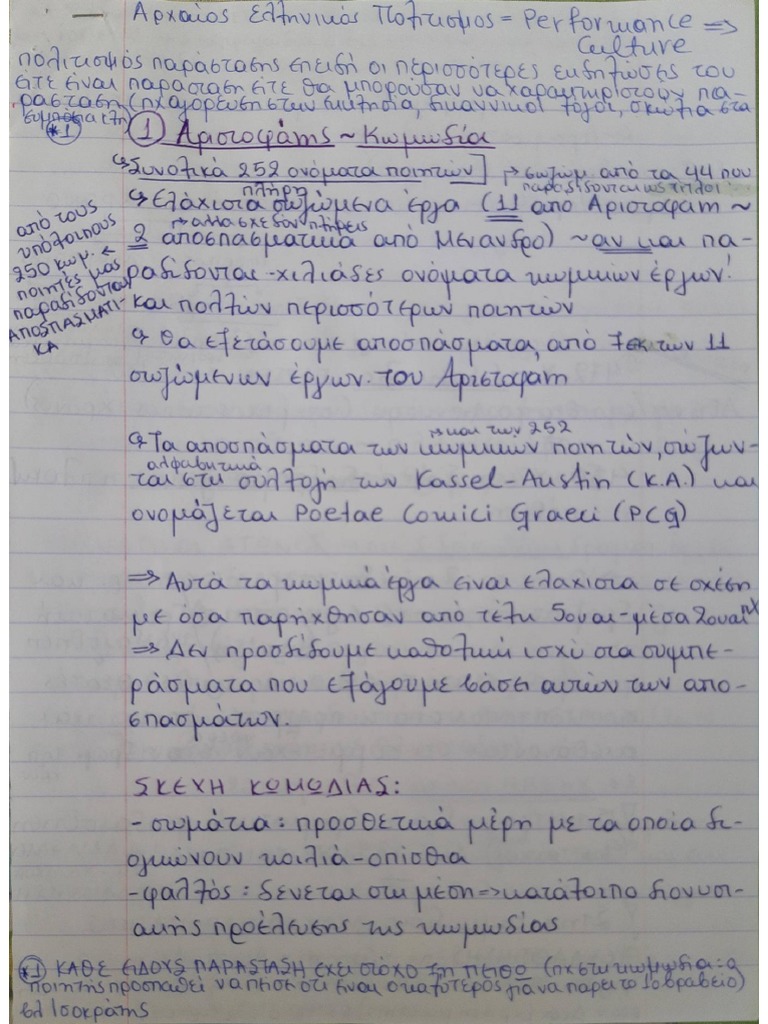 Αρχαίος Ελληνικός Πολιτισμός = Performance =>
Culture
πολιτισμός παράστασης επειδή οι περισσότερες εκδηλώσεις του
είτε είναι παράσταση είτε θα μπορούσαν να χαρακτηριστούν πα-
ράσταση (πχ αγόρευση στην εκκλησία, δικαννικοί λόγοι, σκώλια στα
συμπόσια κλπ)
*1
① Αριστοφάνης ~ Κωμωδία
↪ Συνολικά 252 ονόματα ποιητών]
→ σώζων από τα 44 που
παραδίδονται ως τίτλοι
↪ Ελάχιστα πλήρη σωζώμενα έργα (11 από Αριστοφανη ~
→ αλλα σχεδόν πλήρεις
2 αποσπασματικά από Μένανδρο) ~ αν και πα-
ραδίδονται - χιλιάδες ονόματα κωμικών έργων!
και πολλών περισσότερων ποιητών
από τους
υπόλοιπους
250 κωμ. ←
ποιητές μας
παραδίδονται
ΑΠΟΣΠΑΣΜΑΤΙ-
ΚΑ
↪ Θα εξετάσουμε αποσπάσματα, από 7 εκ των 11
σωζώμενων έργων. του Αριστοφανη
→ και των 252
↪ Τα αποσπάσματα των κωμικών ποιητών, σώζων-
αλφαβητικά
ται στη συλλογή των Kassel-Austin (K.A.) και
ονομάζεται Poetae Comici Graeci (PCG)
=> Αυτά τα κωμικά έργα είναι ελάχιστα σε σχέση
με όσα παρήχθησαν από τέλη 5ου αι - μέσα 2ου αι πΧ
=> Δεν προσδίδουμε καθολική ισχύ στα συμπε-
ράσματα που εξάγουμε βάσει αυτών των απο-
σπασμάτων.
ΣΚΕΥΗ ΚΩΜΩΔΙΑΣ:
- σωμάτια: προσθετικά μέρη με τα οποία δι-
ογκώνουν κοιλιά - οπίσθια
- φαλλός: δένεται στη μέση => κατάλοιπο διονυσι-
ακής προέλευσης της κωμωδίας
*1 ΚΑΘΕ ΕΙΔΟΥΣ ΠΑΡΑΣΤΑΣΗ έχει στόχο τη πειθώ (πχ στη κωμωδία: ο
ποιητής προσπαθεί να πείσει ότι είναι ο καλύτερος για να πάρει το 1ο βραβείο)
βλ Ισοκράτης